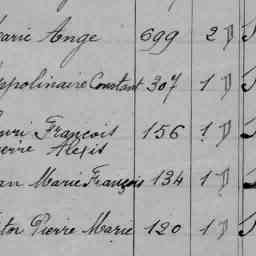 arie Ange 699 2
ppolinaire Constant 307 1
enri François 156 1
ierre Alexis
an Marie François 134 1
tor Pierre Marie 120 1